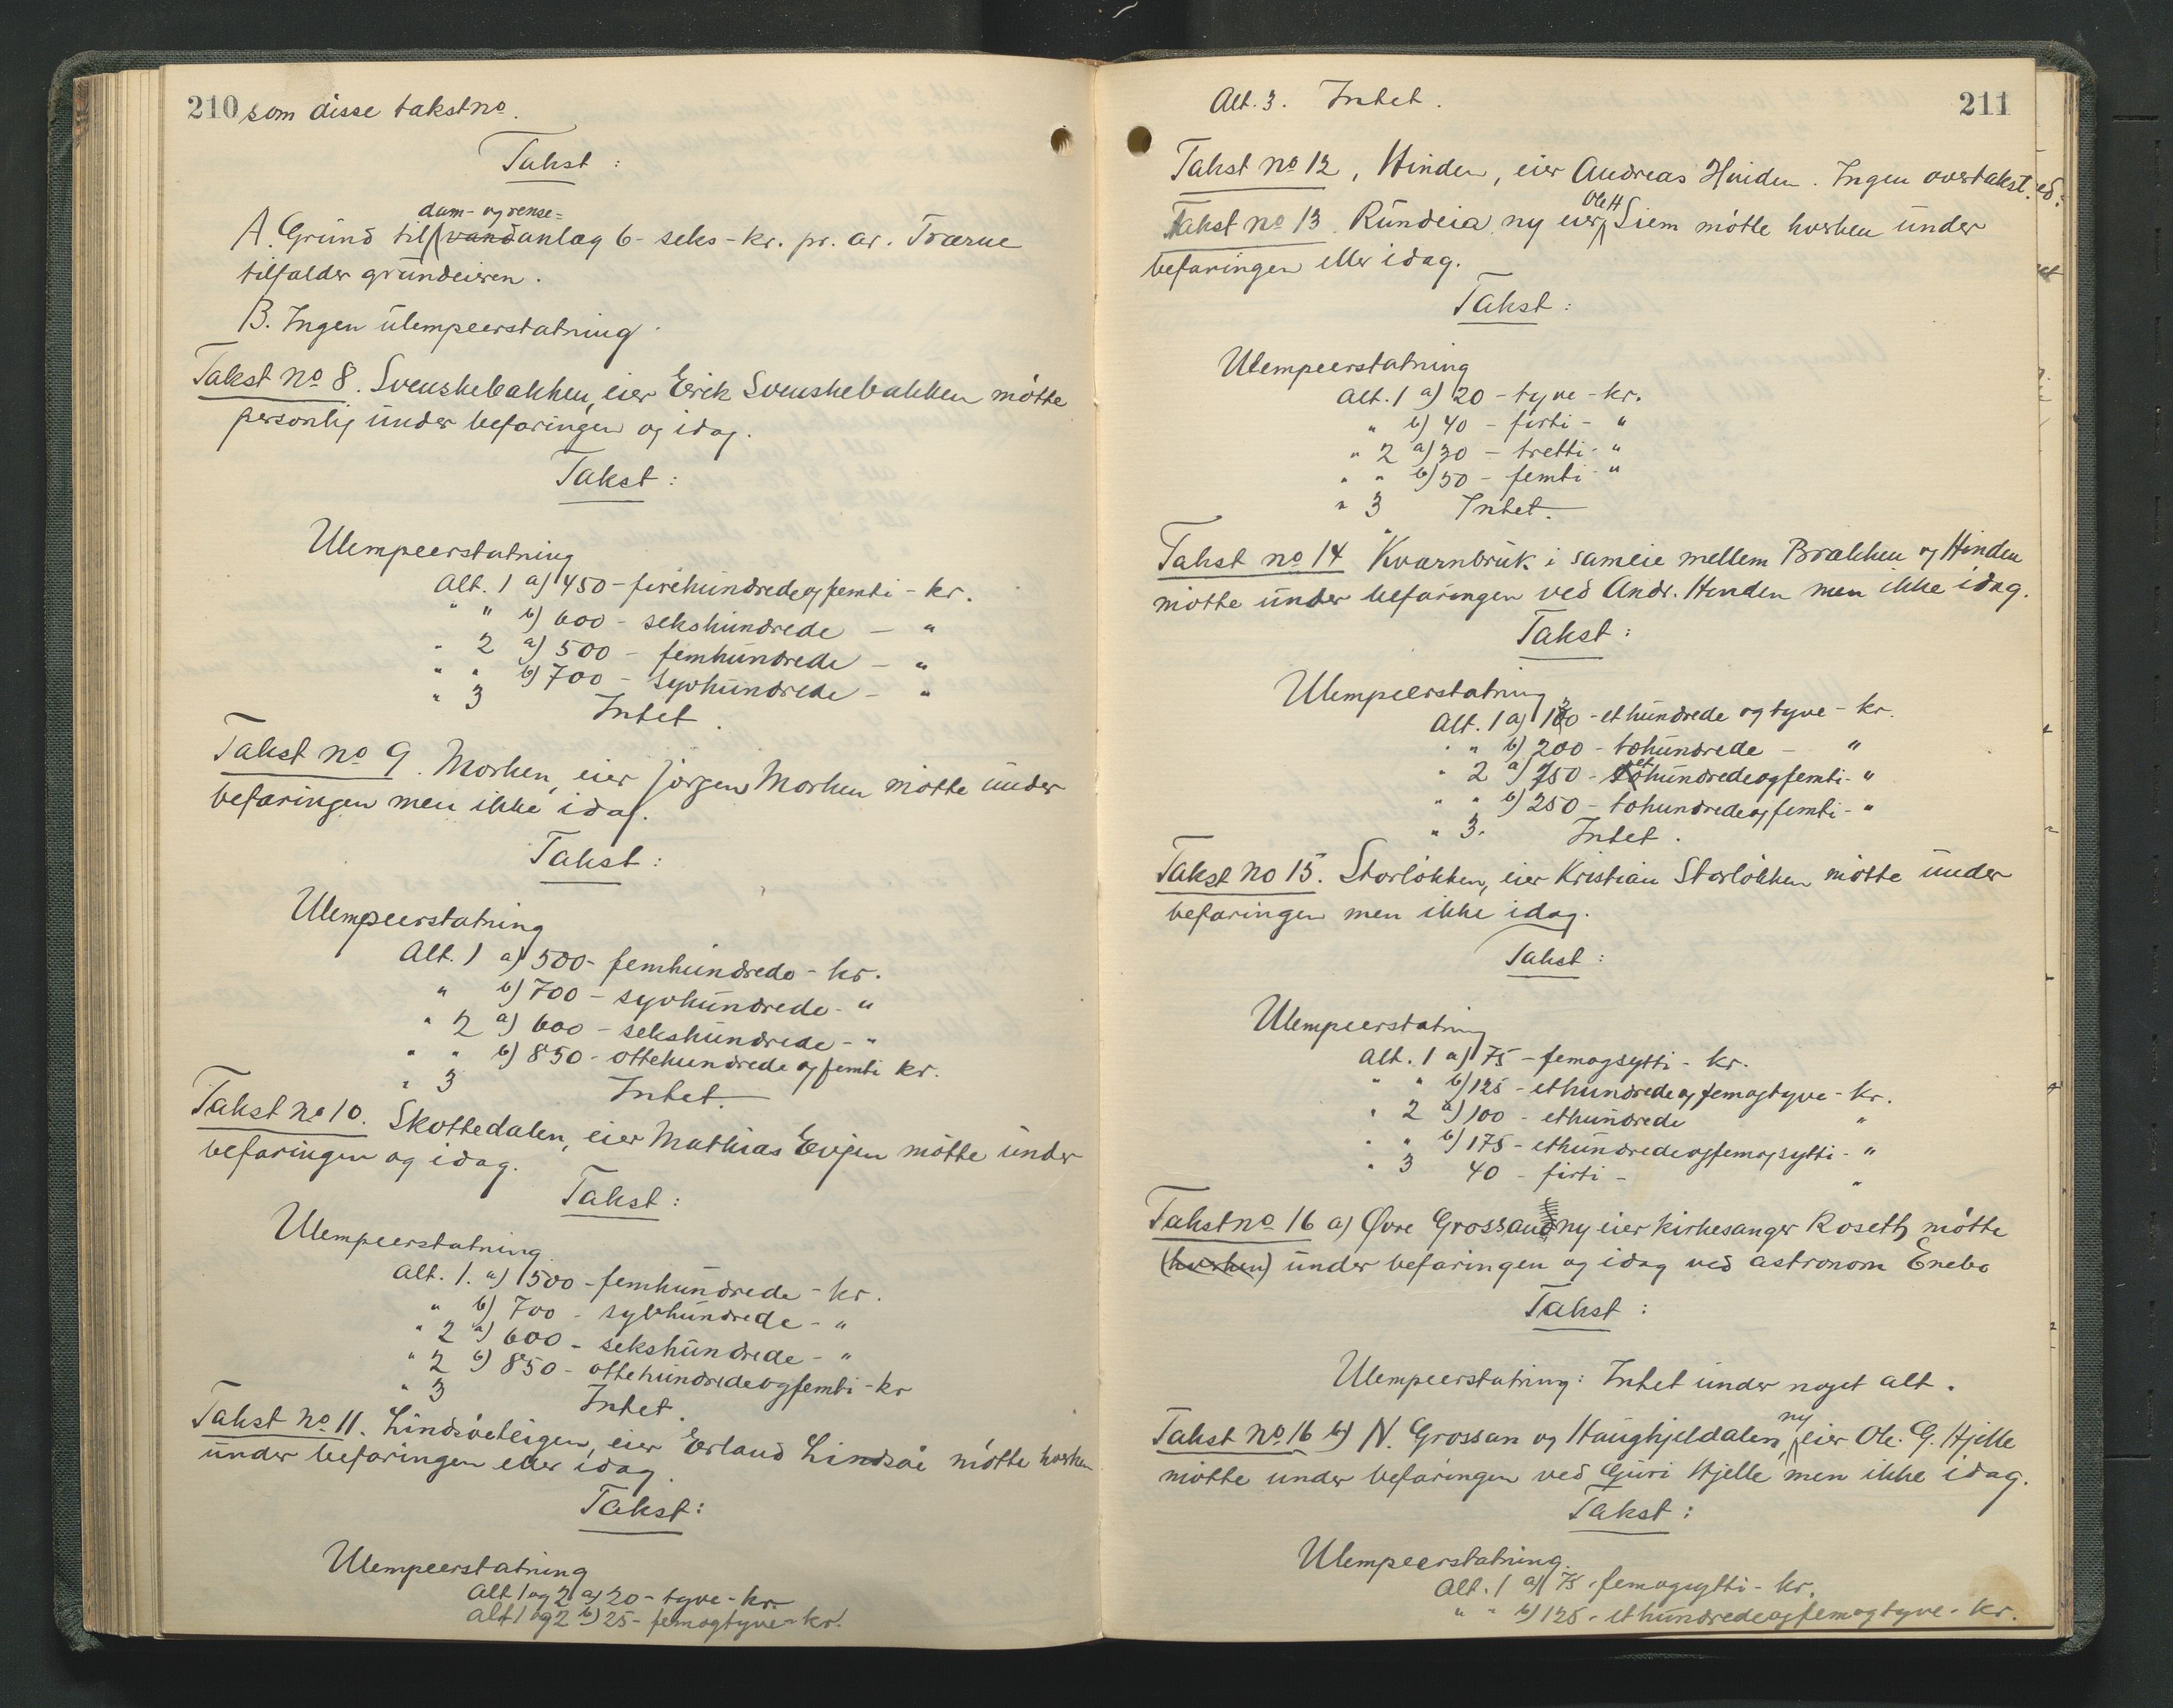 210 som disse takstno.
Takst:
dam- og rense=
A. Grund til vandanlæg 6 - seks - kr. pr. ar. Trærne
tilfalder grundeieren.
B. Ingen ulempeerstatning
Takst no 8. Svenskebakken, eier Erik Svenskebakken møtte
personlig under befaringen og idag.
Takst:
Ulempeerstatning
Alt. 1 a) 450 - firehundredeogfemti - kr.
" " b) 600 - sekshundrede - "
" 2 a) 500 - femhundrede - "
" " b) 700 - syvhundrede - "
" 3 Intet.
Takst no 9. Morken, eier Jørgen Morken møtte under
befaringen men ikke idag.
Takst:
Ulempeerstatning
Alt. 1 a) 500 - femhundrede - kr.
" b) 700 - syvhundrede - "
" 2 a) 600 - sekshundrede - "
" " b) 850 - ottehundrede og femti kr.
" 3 Intet.
Takst no 10. Skottedalen, eier Mathias Evjen møtte under
befaringen og idag.
Takst:
Ulempeerstatning
Alt. 1. a) 500 - femhundrede - kr.
" b) 700 - syvhundrede - "
" 2 a) 600 - sekshundrede - "
" 2 b) 850 - ottehundredeogfemti - kr
" 3 Intet.
Takst no 11. Lindsøeteigen, eier Erland Lindsøe møtte hverken
under befaringen eller idag.
Takst:
Ulempeerstatning
Alt 1 og 2 a) 20 - tyve - kr.
Alt 1 og 2 b) 25 - femogtyve - kr.
Alt. 3. Intet. 211
Takst no 12, Hinden, eier Andreas Hinden. Ingen overtakst.
Ole H
Takst no 13. Rundeia ny eier Siem møtte hverken under
befaringen eller idag.
Takst:
Ulempeerstatning
Alt. 1 a) 20 - tyve - kr.
" b) 40 - førti - "
" 2 a) 30 - tretti - "
" " b) 50 - femti - "
" 3 Intet.
Takst no 14 Kvernbruk i sameie mellem Brækken og Hinden
møtte under befaringen ved Andr. Hinden men ikke idag.
Takst:
Ulempeerstatning
Alt. 1 a) 120 - ethundrede og tyve - kr.
" " b) 200 - tohundrede - "
" 2 a) 150 - ethundredeogfemti - "
" " b) 250 - tohundredeogfemti - "
" 3. Intet.
Takst no 15. Storløkken, eier Kristian Storløkken møtte under
befaringen men ikke idag.
Takst:
Ulempeerstatning
Alt. 1 a) 75 - femogsytti - kr.
" " b) 125 - ethundredeogfemogtyve - kr.
" 2 a) 100 - ethundrede "
" " b) 175 - ethundredeogfemogsytti - "
" 3 40 - førti - "
Takst no 16 a) Øvre Grossan ny eier kirkesanger Roseth møtte
(hverken) under befaringen og idag ved astronom Enebo
Takst:
Ulempeerstatning: Intet under noget alt.
ny
Takst no 16 b) N. Grossan og Haughjeldalen, eier Ole G. Hjelle
møtte under befaringen ved Guri Hjelle men ikke idag.
Takst:
Ulempeerstatning.
Alt. 1 a) 75 - femogsytti - kr.
" " b) 125 - ethundredeogfemogtyve - kr.